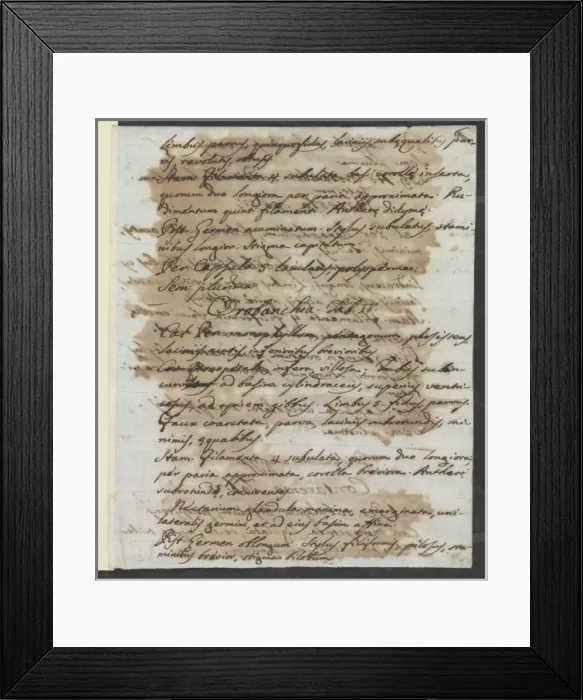 Limbus parvus, quinquefidus, laciniis subequalibus par-
vis, revolutis, obtusis
Stam. Filamenta 4 subulata basi corollæ inserta,
quorum duo longiora per paria approximata. Ru-
dimentum quinti filamenti. Antheræ didymæ.
Pist. Germen acuminatum. Stylus subulatus, stami-
nibus longior. Stigma capitatum.
Per. Capsula 5-
Sem. plurima
Orobanchia Tab. II
Cal. Per. monophyllum, pentagonum,
laciniis acutis, inferioribus brevioribus
Cor. Monopetala, infera, villosa, Tubus subin-
curvus ad basim cylindraceus, superius ventri-
cosus, ad apicem gibbus. Limbus 5-fidus, parvus.
Faux coarctata, parva, laciniis subrotundis, mi-
nimis, equalibus.
Stam. Filamenta 4 subulata, quorum duo longiora,
per paria approximata, corolla breviora. Antheræ
subrotundæ, conniventes
Nectarium glandula maxima, emarginata, uni-
lateralis germini, et ad ejus basim affixa.
Pist. Germen oblongum. Stylus filiformis, pilosus, sta-
minibus brevior, stigma bilobum